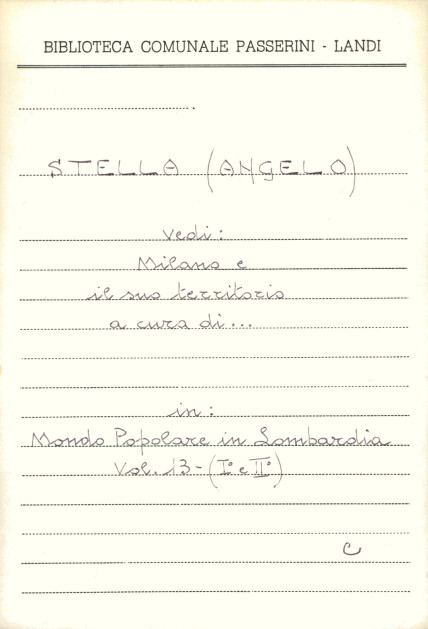 BIBLIOTECA COMUNALE PASSERINI - LANDI
STELLA (ANGELO)
vedi:
Milano e
il suo territorio
a cura di...
in:
Mondo Popolare in Lombardia
Vol. 13 - (I° e II°)
C